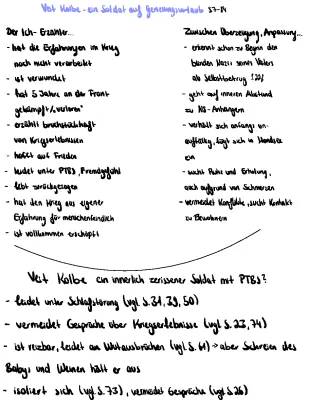 Veit Kolbe - ein Soldat auf Genesungsurlaub S7-14
Der Ich-Erzähler...
- hat die Erfahrungen im Krieg
noch nicht verarbeitet
- ist verwundet
- hat 5 Jahre an der Front
gekämpft/„verloren"
- erzählt bruchstückhaft
von Kriegserlebnissen
- hofft auf Frieden
- leidet unter PTBS, Fremdgefühl
- lebt zurückgezogen
- hat den Krieg aus eigener
Erfahrung für menschenfeindlich
- ist vollkommen erschöpft
Zwischen Überzeugung, Anpassung...
- erkennt schon zu Beginn den
Nazis seines Vaters
als Selbstbetrug
- geht auf inneren Abstand
zu NS-Anhängern
- verhält sich anfangs un-
auffällig, fügt sich in Mondsee
ein
- sucht Ruhe und Erholung,
auch aufgrund von Schmerzen
- vermeidet Konflikte, sucht Kontakt
zu Bewohnern
Veit Kolbe ein innerlich zerissener Soldat mit PTBS?
- leidet unter Schlafstörung (vgl S. 31, 39, 50)
- vermeidet Gespräche über Kriegserlebnisse (vgl S. 23, 74)
- ist reizbar, leidet an Wutausbrüchen (vgl S. 61) → aber Schreien des
Babys und Weinen hält er aus
- isoliert sich (vgl S. 73), vermeidet Gespräche (vgl S. 26)